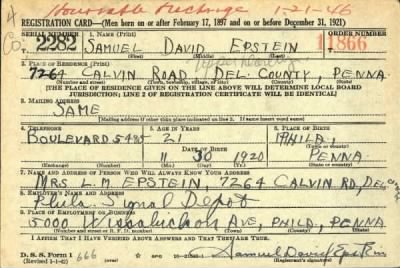 Honorable Discharge 1-21-46
REGISTRATION CARD—(Men born on or after February 17, 1897 and on or before December 31, 1921)
SERIAL NUMBER 1. NAME (Print) ORDER NUMBER
2282 SAMUEL DAVID EPSTEIN 11866
(First) (Middle) (Last)
2. PLACE OF RESIDENCE (Print)
7264 CALVIN ROAD DEL. COUNTY, PENNA
(Number and street) (Town, township, village, or city) (County) (State)
[THE PLACE OF RESIDENCE GIVEN ON THE LINE ABOVE WILL DETERMINE LOCAL BOARD
JURISDICTION; LINE 2 OF REGISTRATION CERTIFICATE WILL BE IDENTICAL]
3. MAILING ADDRESS
SAME
[Mailing address if other than place indicated on line 2. If same insert word same]
4. TELEPHONE 5. AGE IN YEARS 6. PLACE OF BIRTH
BOULEVARD 5485 21 PHILA.
DATE OF BIRTH (Town or county)
11 30 1920 PENNA
(Exchange) (Number) (Mo.) (Day) (Yr.) (State or country)
7. NAME AND ADDRESS OF PERSON WHO WILL ALWAYS KNOW YOUR ADDRESS
MRS L.M. EPSTEIN, 7264 CALVIN RD, DEL.
8. EMPLOYER'S NAME AND ADDRESS
Phila. Signal Depot
9. PLACE OF EMPLOYMENT OR BUSINESS
5000 Wissahickon Ave, PHILA, PENNA
(Number and street or R. F. D. number) (Town) (County) (State)
I AFFIRM THAT I HAVE VERIFIED ABOVE ANSWERS AND THAT THEY ARE TRUE.
D. S. S. Form 1 666 GPO Samuel David Epstein
(Revised 1-1-42) (Registrant's signature)